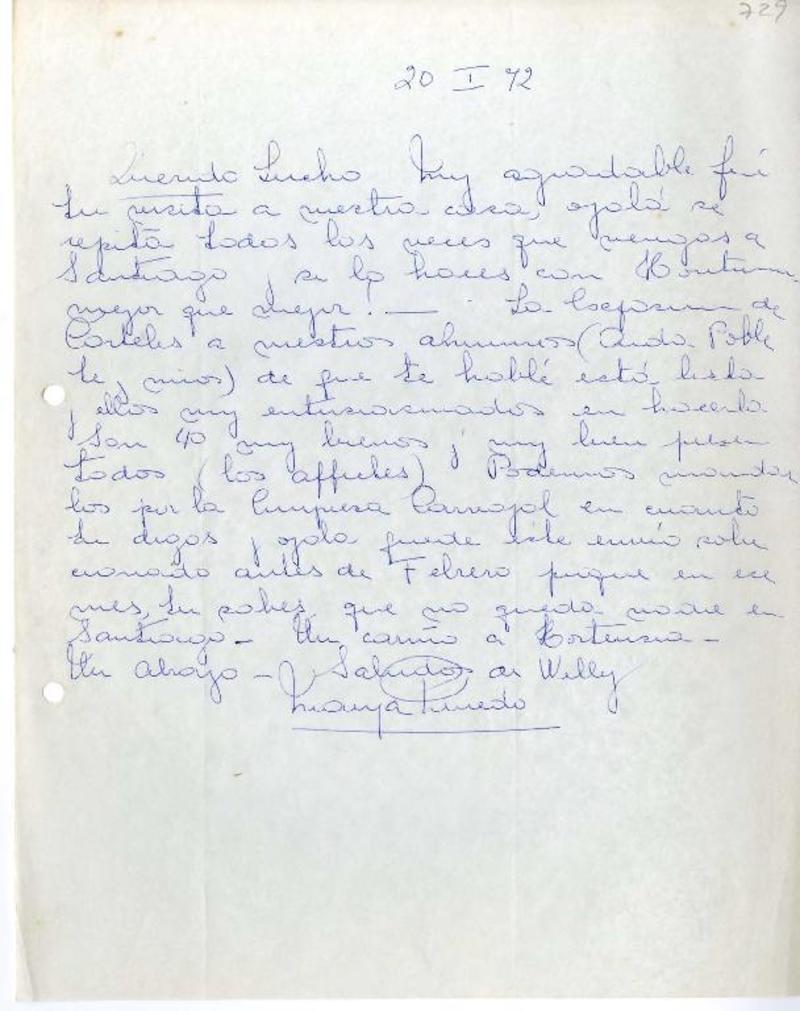 729
20 I 72
Querido Lucho Muy agradable fué
tu visita a nuestra casa, ojalá se
repita todas las veces que vengas a
Santiago y si lo haces con
mejor que mejor! — La Exposicion de
Carteles a nuestros alumnos (Aída Poble
te y mios) de que te hablé está lista
y ellos muy entusiasmados en hacerla
Son 40 muy buenos y muy bien presen
tados (los affiches) Podemos mandar
los por la Empresa Carvajal en cuanto
tu digas y ojala quede este envio solu
cionado antes de Febrero puque en ese
mes, tu sabes que no queda nadie en
Santiago - Un cariño a Hortensia -
Un abrazo - Saludos de Willy
Pinedo